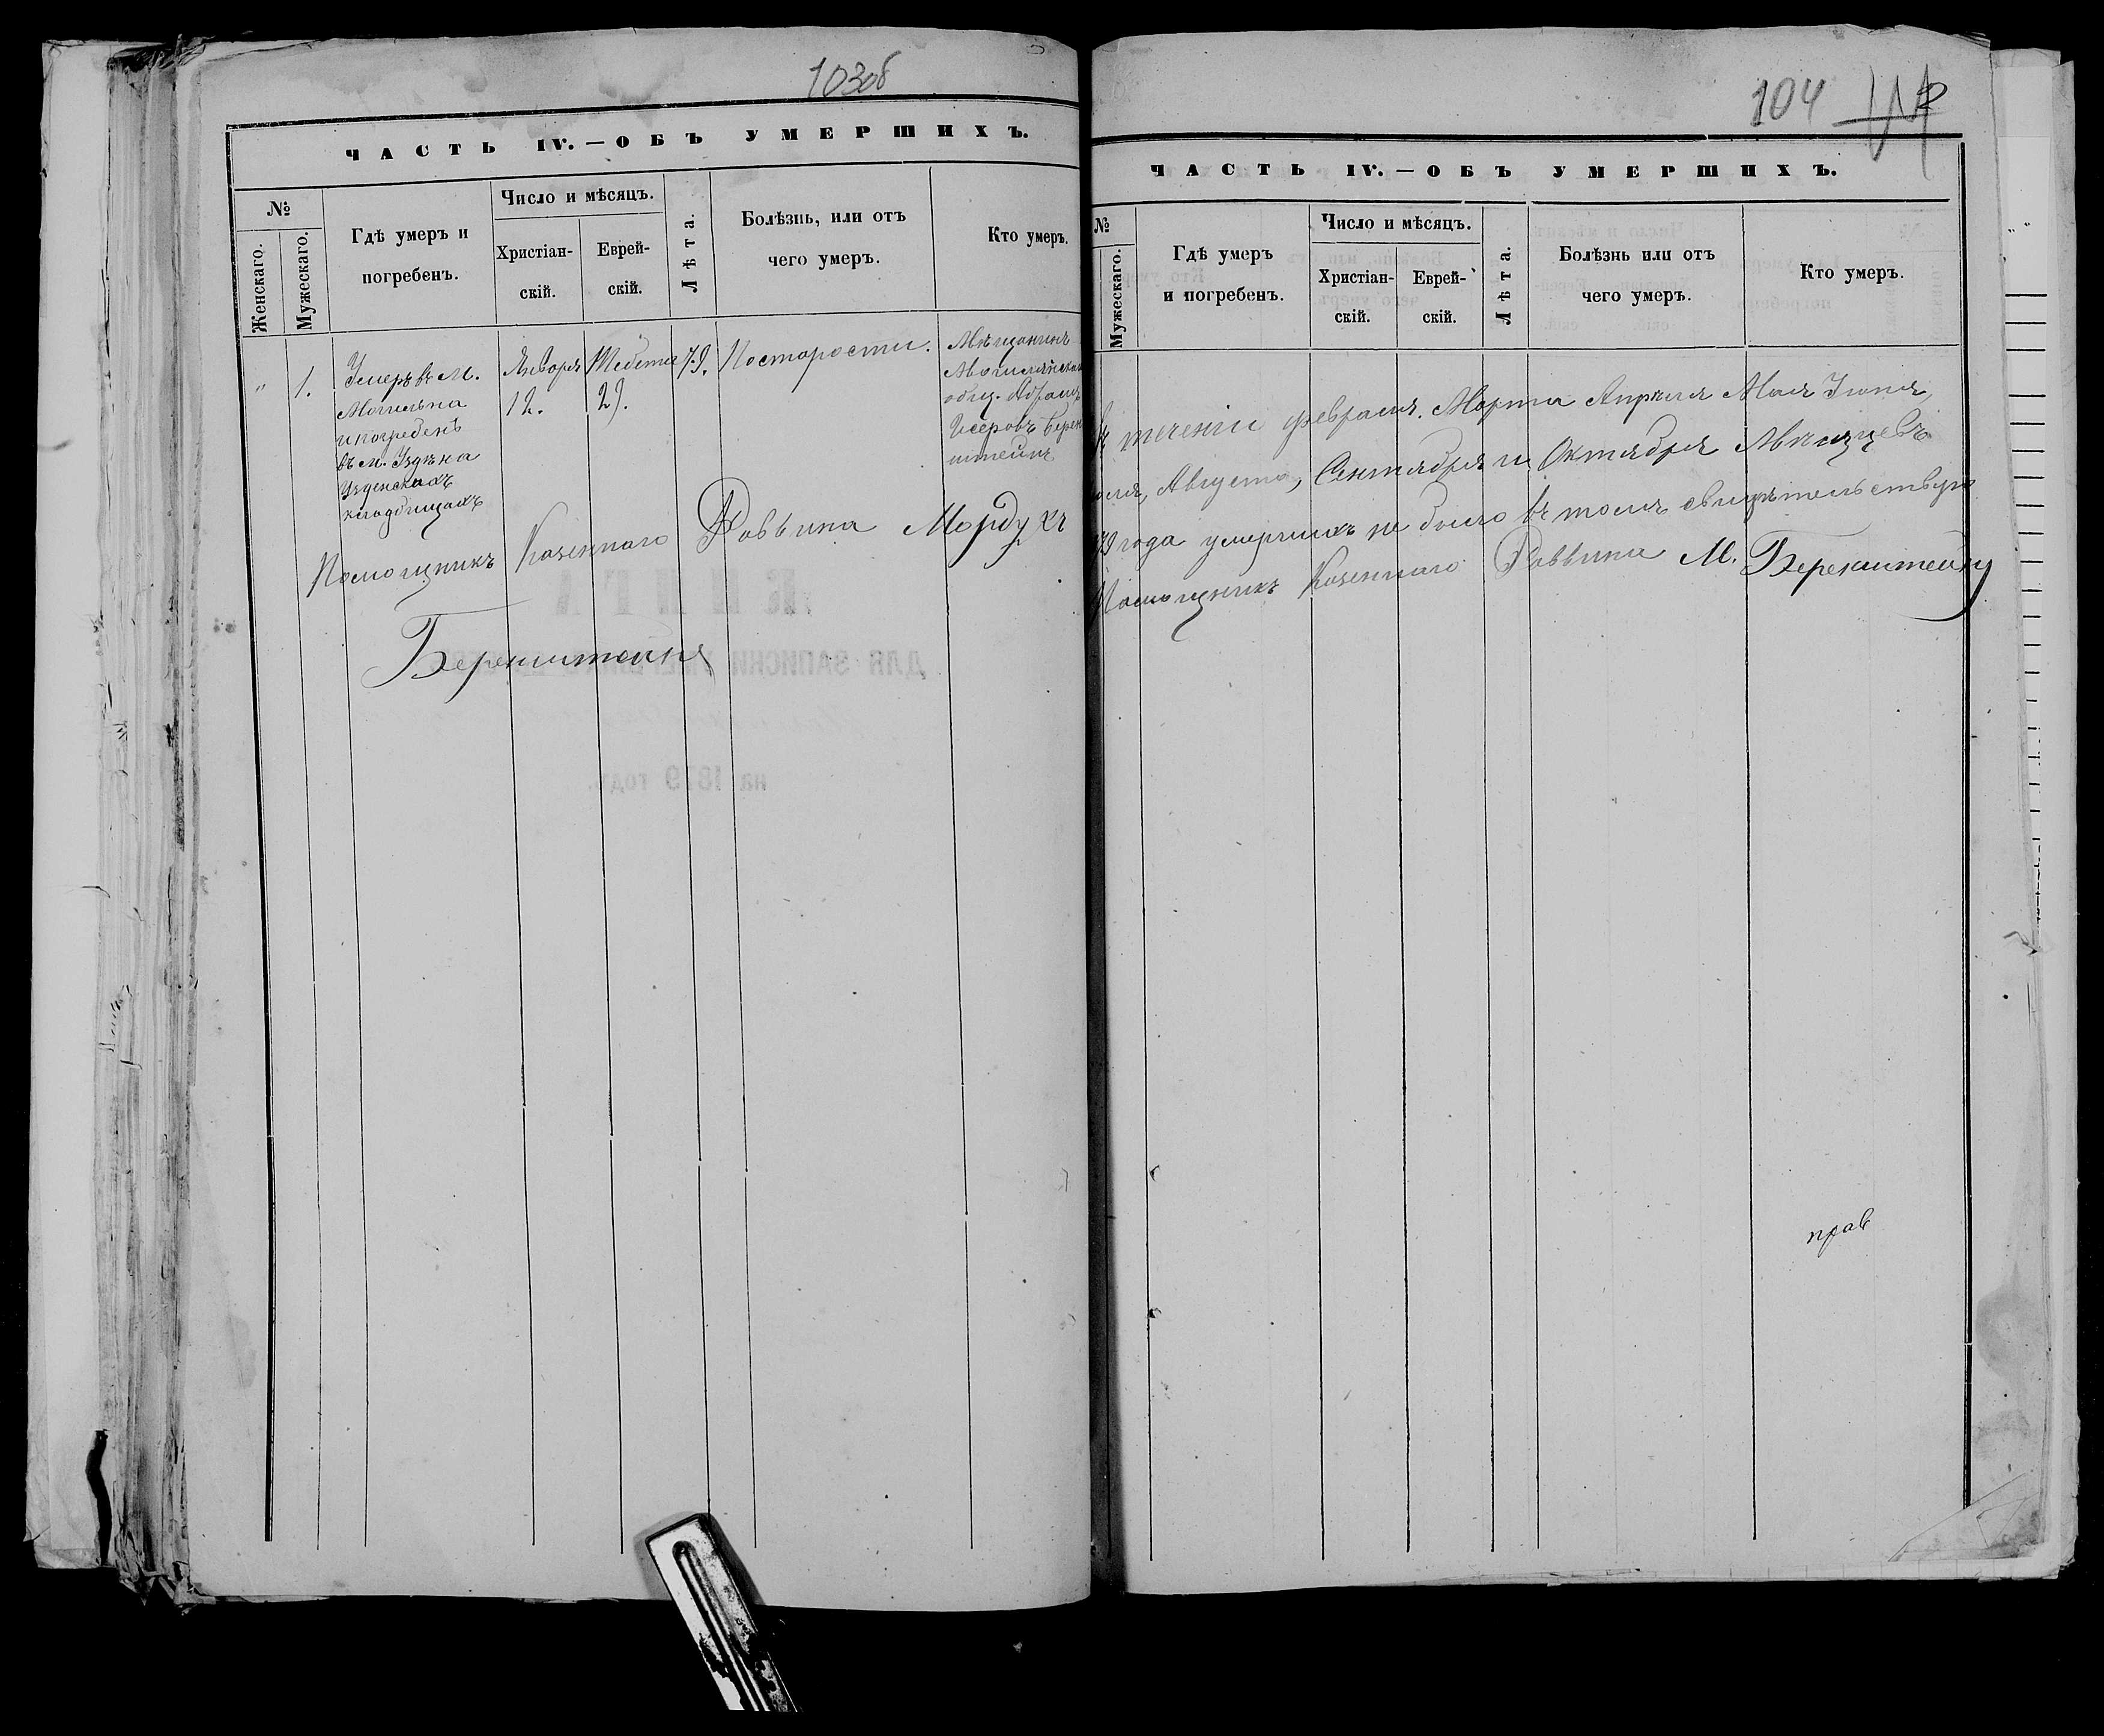 103об
ЧАСТЬ IV. — ОБЪ УМЕРШИХЪ.
№
Женскаго.
Мужескаго.
Гдѣ умеръ и
погребенъ.
Число и мѣсяцъ.
Христіан-
скій.
Еврей-
скій.
Лѣта.
Болѣзнь, или отъ
чего умеръ.
Кто умеръ.
" 1.
Умеръ въ м.
Могильна
и погребенъ
въ м. Уздѣна
Узденскихъ
кладбищахъ
Января
12.
Тебета
29.
79.
Постарости.
Мѣщанинъ
общ. Абрамъ
Исеровъ Берен
штейнъ
Помощникъ Казеннаго Раввина Мордухъ
Беренштейнъ
КНИГА
ДЛЯ ЗАПИСКИ
на 1879 годъ.
104
ЧАСТЬ IV. — ОБЪ УМЕРШИХЪ.
№
Мужескаго.
Гдѣ умеръ
и погребенъ.
Число и мѣсяцъ.
Христіан-
скій.
Еврей-
скій.
Лѣта.
Болѣзнь или отъ
чего умеръ.
Кто умеръ.
теченіи Февраля. Марта Апрѣля Мая Іюня,
Августа, Сентября и Октября Мѣсяцевъ
79 года умершихъ не было въ томъ свидѣтельствую
Помощникъ Казеннаго Раввина М. Беренштейнъ
прав